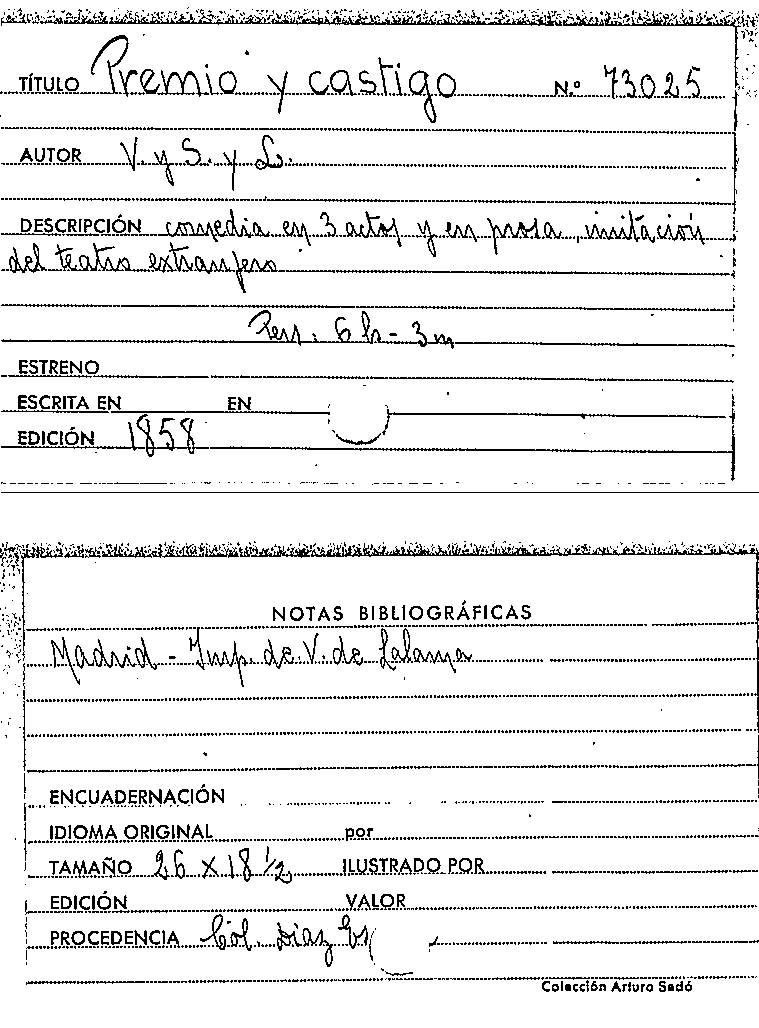 TÍTULO Premio y castigo N.º 73025
AUTOR V. y S. y L.
DESCRIPCIÓN comedia en 3 actos y en prosa, imitación
del teatro extranjero
Pers: 6 h - 3 m
ESTRENO
ESCRITA EN EN
EDICIÓN 1858
NOTAS BIBLIOGRÁFICAS
Madrid - Imp. de V. de Lalama
ENCUADERNACIÓN
IDIOMA ORIGINAL por
TAMAÑO 26 X 18 1/2 ILUSTRADO POR
EDICIÓN VALOR
PROCEDENCIA Col. Diaz
Colección Arturo Sedó